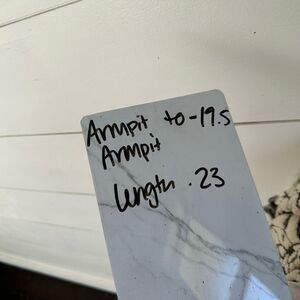 Armpit to - 19.5
Armpit
length . 23